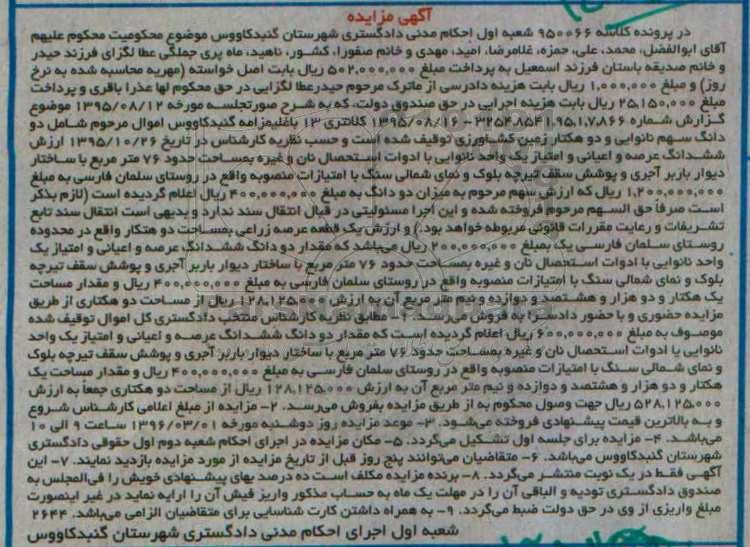 آگهی مزایده
در پرونده کلاسه ۹۵۰۰۶۶ شعبه اول احکام مدنی دادگستری شهرستان گنبدکاووس موضوع محکومیت محکوم علیهم
آقای ابوالفضل، محمد، علی، حمزه، غلامرضا، امید، مهدی و خانم صفورا، کشور، ناهید، ماه پری جملگی عطا لگزای فرزند حیدر
و خانم صدیقه باستان فرزند اسمعیل به پرداخت مبلغ ۵۰۲,۰۰۰,۰۰۰ ریال بابت اصل خواسته (مهریه محاسبه شده به نرخ
روز) و مبلغ ۱,۰۰۰,۰۰۰ ریال بابت هزینه دادرسی از ماترک مرحوم حیدرعطا لگزایی در حق محکوم لها عذرا باقری و پرداخت
مبلغ ۲۵,۱۵۰,۰۰۰ ریال بابت هزینه اجرایی در حق صندوق دولت، که به شرح صورتجلسه مورخه ۱۳۹۵/۰۸/۱۲ موضوع
گزارش شماره ۳۲۵۴۸۵۴۱,۹۵,۱,۷,۸۶۶ - ۱۳۹۵/۰۸/۱۶ کلانتری ۱۳ باغلیمزامه گنبدکاووس اموال مرحوم شامل دو
دانگ سهم نانوایی و دو هکتار زمین کشاورزی توقیف شده است و حسب نظریه کارشناس در تاریخ ۱۳۹۵/۱۰/۲۶ ارزش
ششدانگ عرصه و اعیانی و امتیاز یک واحد نانوایی با ادوات استحصال نان و غیره بمساحت حدود ۷۶ متر مربع با ساختار
دیوار باربر آجری و پوشش سقف تیرچه بلوک و نمای شمالی سنگ با امتیازات منصوبه واقع در روستای سلمان فارسی به مبلغ
۱,۲۰۰,۰۰۰,۰۰۰ ریال که ارزش سهم مرحوم به میزان دو دانگ به مبلغ ۴۰۰,۰۰۰,۰۰۰ ریال اعلام گردیده است (لازم بذکر
است صرفاً حق السهم مرحوم فروخته شده و این اجرا مسئولیتی در قبال انتقال سند ندارد و بدیهی است انتقال سند تابع
تشریفات و رعایت مقررات قانونی مربوطه خواهد بود.) و ارزش یک قطعه عرصه زراعی بمساحت دو هتکار واقع در محدوده
روستای سلمان فارسی یک بمبلغ ۲۰۰,۰۰۰,۰۰۰ ریال می‌باشد که مقدار دو دانگ ششدانگ عرصه و اعیانی و امتیاز یک
واحد نانوایی با ادوات استحصال نان و غیره بمساحت حدود ۷۶ متر مربع با ساختار دیوار باربر آجری و پوشش سقف تیرچه
بلوک و نمای شمالی سنگ با امتیازات منصوبه واقع در روستای سلمان فارسی به مبلغ ۴۰۰,۰۰۰,۰۰۰ ریال و مقدار مساحت
یک هکتار و دو هزار و هشتصد و دوازده و نیم متر مربع آن به ارزش ۱۲۸,۱۲۵,۰۰۰ ریال از مساحت دو هکتاری از طریق
مزایده حضوری و با حضور دادستان را به فروش برساند. ۱- مطابق نظریه کارشناس منتخب دادگستری کل اموال توقیف شده
موصوف به مبلغ ۶۰۰,۰۰۰,۰۰۰ ریال اعلام گردیده است که مقدار دو دانگ ششدانگ عرصه و اعیانی و امتیاز یک واحد
نانوایی با ادوات استحصال نان و غیره بمساحت حدود ۷۶ متر مربع با ساختار دیوار باربر آجری و پوشش سقف تیرچه بلوک
و نمای شمالی سنگ با امتیازات منصوبه واقع در روستای سلمان فارسی به مبلغ ۴۰۰,۰۰۰,۰۰۰ ریال و مقدار مساحت یک
هکتار و دو هزار و هشتصد و دوازده و نیم متر مربع آن به ارزش ۱۲۸,۱۲۵,۰۰۰ ریال از مساحت دو هکتاری جمعاً به ارزش
۵۲۸,۱۲۵,۰۰۰ ریال جهت وصول محکوم به از طریق مزایده بفروش می‌رسد. ۲- مزایده از مبلغ اعلامی کارشناس شروع
و به بالاترین قیمت پیشنهادی فروخته می‌شود. ۳- موعد مزایده روز دوشنبه مورخه ۱۳۹۶/۰۳/۰۱ ساعت ۹ الی ۱۰
می‌باشد. ۴- مزایده برای جلسه اول تشکیل می‌گردد. ۵- مکان مزایده در اجرای احکام شعبه دوم اول حقوقی دادگستری
شهرستان گنبدکاووس می‌باشد. ۶- متقاضیان می‌توانند پنج روز قبل از تاریخ مزایده از مورد مزایده بازدید نمایند. ۷- این
آگهی فقط در یک نوبت منتشر می‌گردد. ۸- برنده مزایده مکلف است ده درصد بهای پیشنهادی خویش را فی‌المجلس به
صندوق دادگستری تودیه و الباقی آن را در مهلت یک ماه به حساب مذکور واریز فیش آن را ارایه نماید در غیر اینصورت
مبلغ واریزی از وی در حق دولت ضبط می‌گردد. ۹- به همراه داشتن کارت شناسایی برای متقاضیان الزامی می‌باشد. ۲۶۴۴
شعبه اول اجرای احکام مدنی دادگستری شهرستان گنبدکاووس